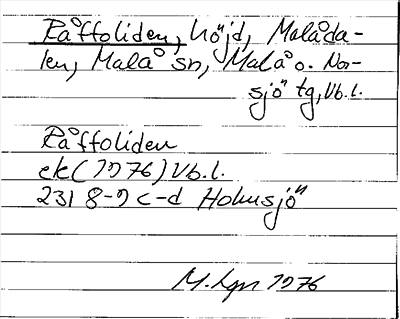 Råffoliden, höjd, Malåda-
len, Malå sn, Malå o. Nor-
sjö tg, Vb.l.
Råffoliden
ek (1976) Vb.l.
231 8-9 c-d Hokusjö
M. Lgn 1976